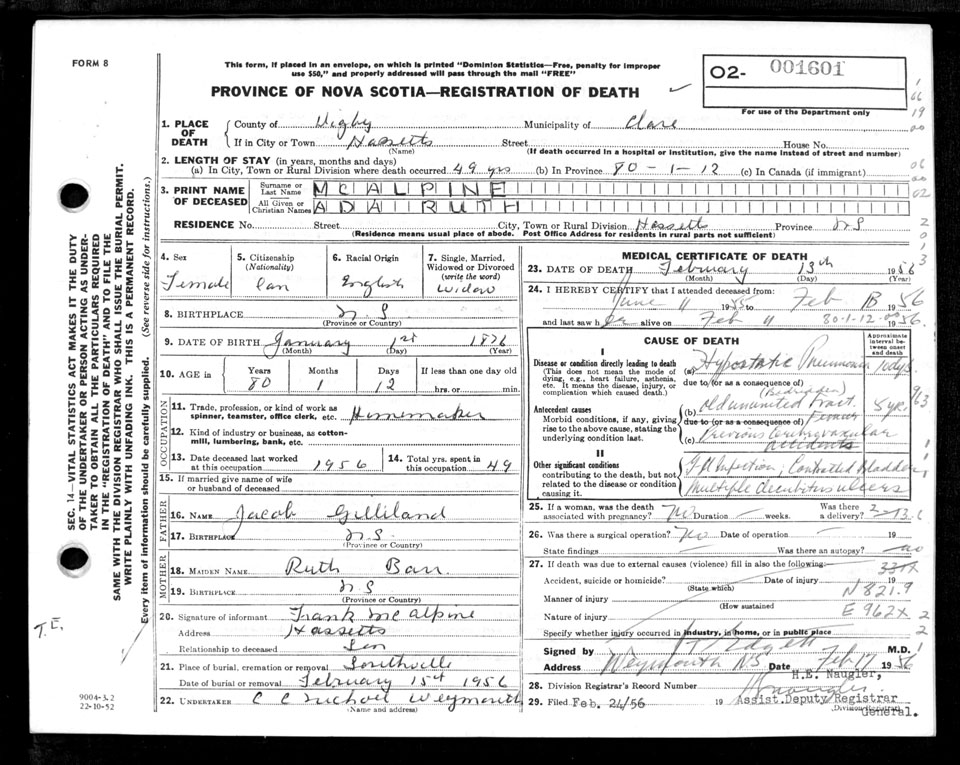 FORM 8
This form, if placed in an envelope, on which is printed "Dominion Statistics—Free, penalty for improper
use $50," and properly addressed will pass through the mail "FREE"
PROVINCE OF NOVA SCOTIA—REGISTRATION OF DEATH
02- 001601
For use of the Department only
1. PLACE OF DEATH
County of Digby Municipality of Clare
If in City or Town Hassetts Street House No.
(Name) (If death occurred in a hospital or institution, give the name instead of street and number)
2. LENGTH OF STAY (in years, months and days)
(a) In City, Town or Rural Division where death occurred 49 yrs (b) In Province 80-1-12 (c) In Canada (if immigrant)
3. PRINT NAME OF DECEASED
Surname or Last Name MCALPINE
All Given or Christian Names ADA RUTH
RESIDENCE No. Street City, Town or Rural Division Hassetts Province NS
(Residence means usual place of abode. Post Office Address for residents in rural parts not sufficient)
4. Sex
Female
5. Citizenship
(Nationality)
Can
6. Racial Origin
English
7. Single, Married, Widowed or Divorced
(write the word)
Widow
8. BIRTHPLACE N.S.
(Province or Country)
9. DATE OF BIRTH January 1st 1876
(Month) (Day) (Year)
10. AGE in Years Months Days If less than one day old
80 1 12 hrs. or min.
OCCUPATION
11. Trade, profession, or kind of work as
spinner, teamster, office clerk, etc. Homemaker
12. Kind of industry or business, as cotton-
mill, lumbering, bank, etc.
13. Date deceased last worked
at this occupation 1956
14. Total yrs. spent in
this occupation 49
15. If married give name of wife
or husband of deceased
FATHER
16. NAME Jacob Gilliland
17. BIRTHPLACE N.S
(Province or Country)
MOTHER
18. MAIDEN NAME Ruth Barr
19. BIRTHPLACE N S
(Province or Country)
20. Signature of informant Frank McAlpine
Address Hassetts
Relationship to deceased Son
21. Place of burial, cremation or removal Southville
Date of burial or removal February 15th 1956
22. UNDERTAKER C C Weymouth
(Name and address)
MEDICAL CERTIFICATE OF DEATH
23. DATE OF DEATH February 13th 1956
(Month) (Day) (Year)
24. I HEREBY CERTIFY that I attended deceased from:
June 11 1955 to Feb 13 1956
and last saw her alive on Feb 11 1956.
80-1-12
CAUSE OF DEATH
Approximate interval between onset and death
I
Disease or condition directly leading to death
(This does not mean the mode of
dying, e.g., heart failure, asthenia,
etc. It means the disease, injury, or
complication which caused death.)
(a) Hypostatic Pneumonia
due to (or as a consequence of)
(Bedridden)
Antecedent causes
Morbid conditions, if any, giving
rise to the above cause, stating the
underlying condition last.
(b) Old ununited Fract. Femur 5 yr.
due to (or as a consequence of)
(c) Previous Cerebrovascular accidents
II
Other significant conditions
contributing to the death, but not
related to the disease or condition
causing it.
Infection; Contracted Bladder,
Multiple decubitus ulcers
25. If a woman, was the death
associated with pregnancy? No Duration — weeks. Was there a delivery?
26. Was there a surgical operation? No Date of operation — 19
State findings — Was there an autopsy? no
27. If death was due to external causes (violence) fill in also the following:
Accident, suicide or homicide? Date of injury 19
(State which)
Manner of injury N 821.9
(How sustained)
Nature of injury E 962X
Specify whether injury occurred in industry, in home, or in public place
Signed by M.D.
Address Weymouth NS Date Feb 17 1956
H.E. Naugler,
28. Division Registrar's Record Number
29. Filed Feb. 24/56 19
Assist. Deputy Registrar
General.
(Division Registrar)
SEC. 14—VITAL STATISTICS ACT MAKES IT THE DUTY
OF THE UNDERTAKER OR PERSON ACTING AS UNDER-
TAKER TO OBTAIN ALL THE PARTICULARS REQUIRED
IN THE "REGISTRATION OF DEATH" AND TO FILE THE
SAME WITH THE DIVISION REGISTRAR WHO SHALL ISSUE THE BURIAL PERMIT.
WRITE PLAINLY WITH UNFADING INK. THIS IS A PERMANENT RECORD.
Every item of information should be carefully supplied. (See reverse side for instructions.)
T.E.
9004-3.2
22-10-52